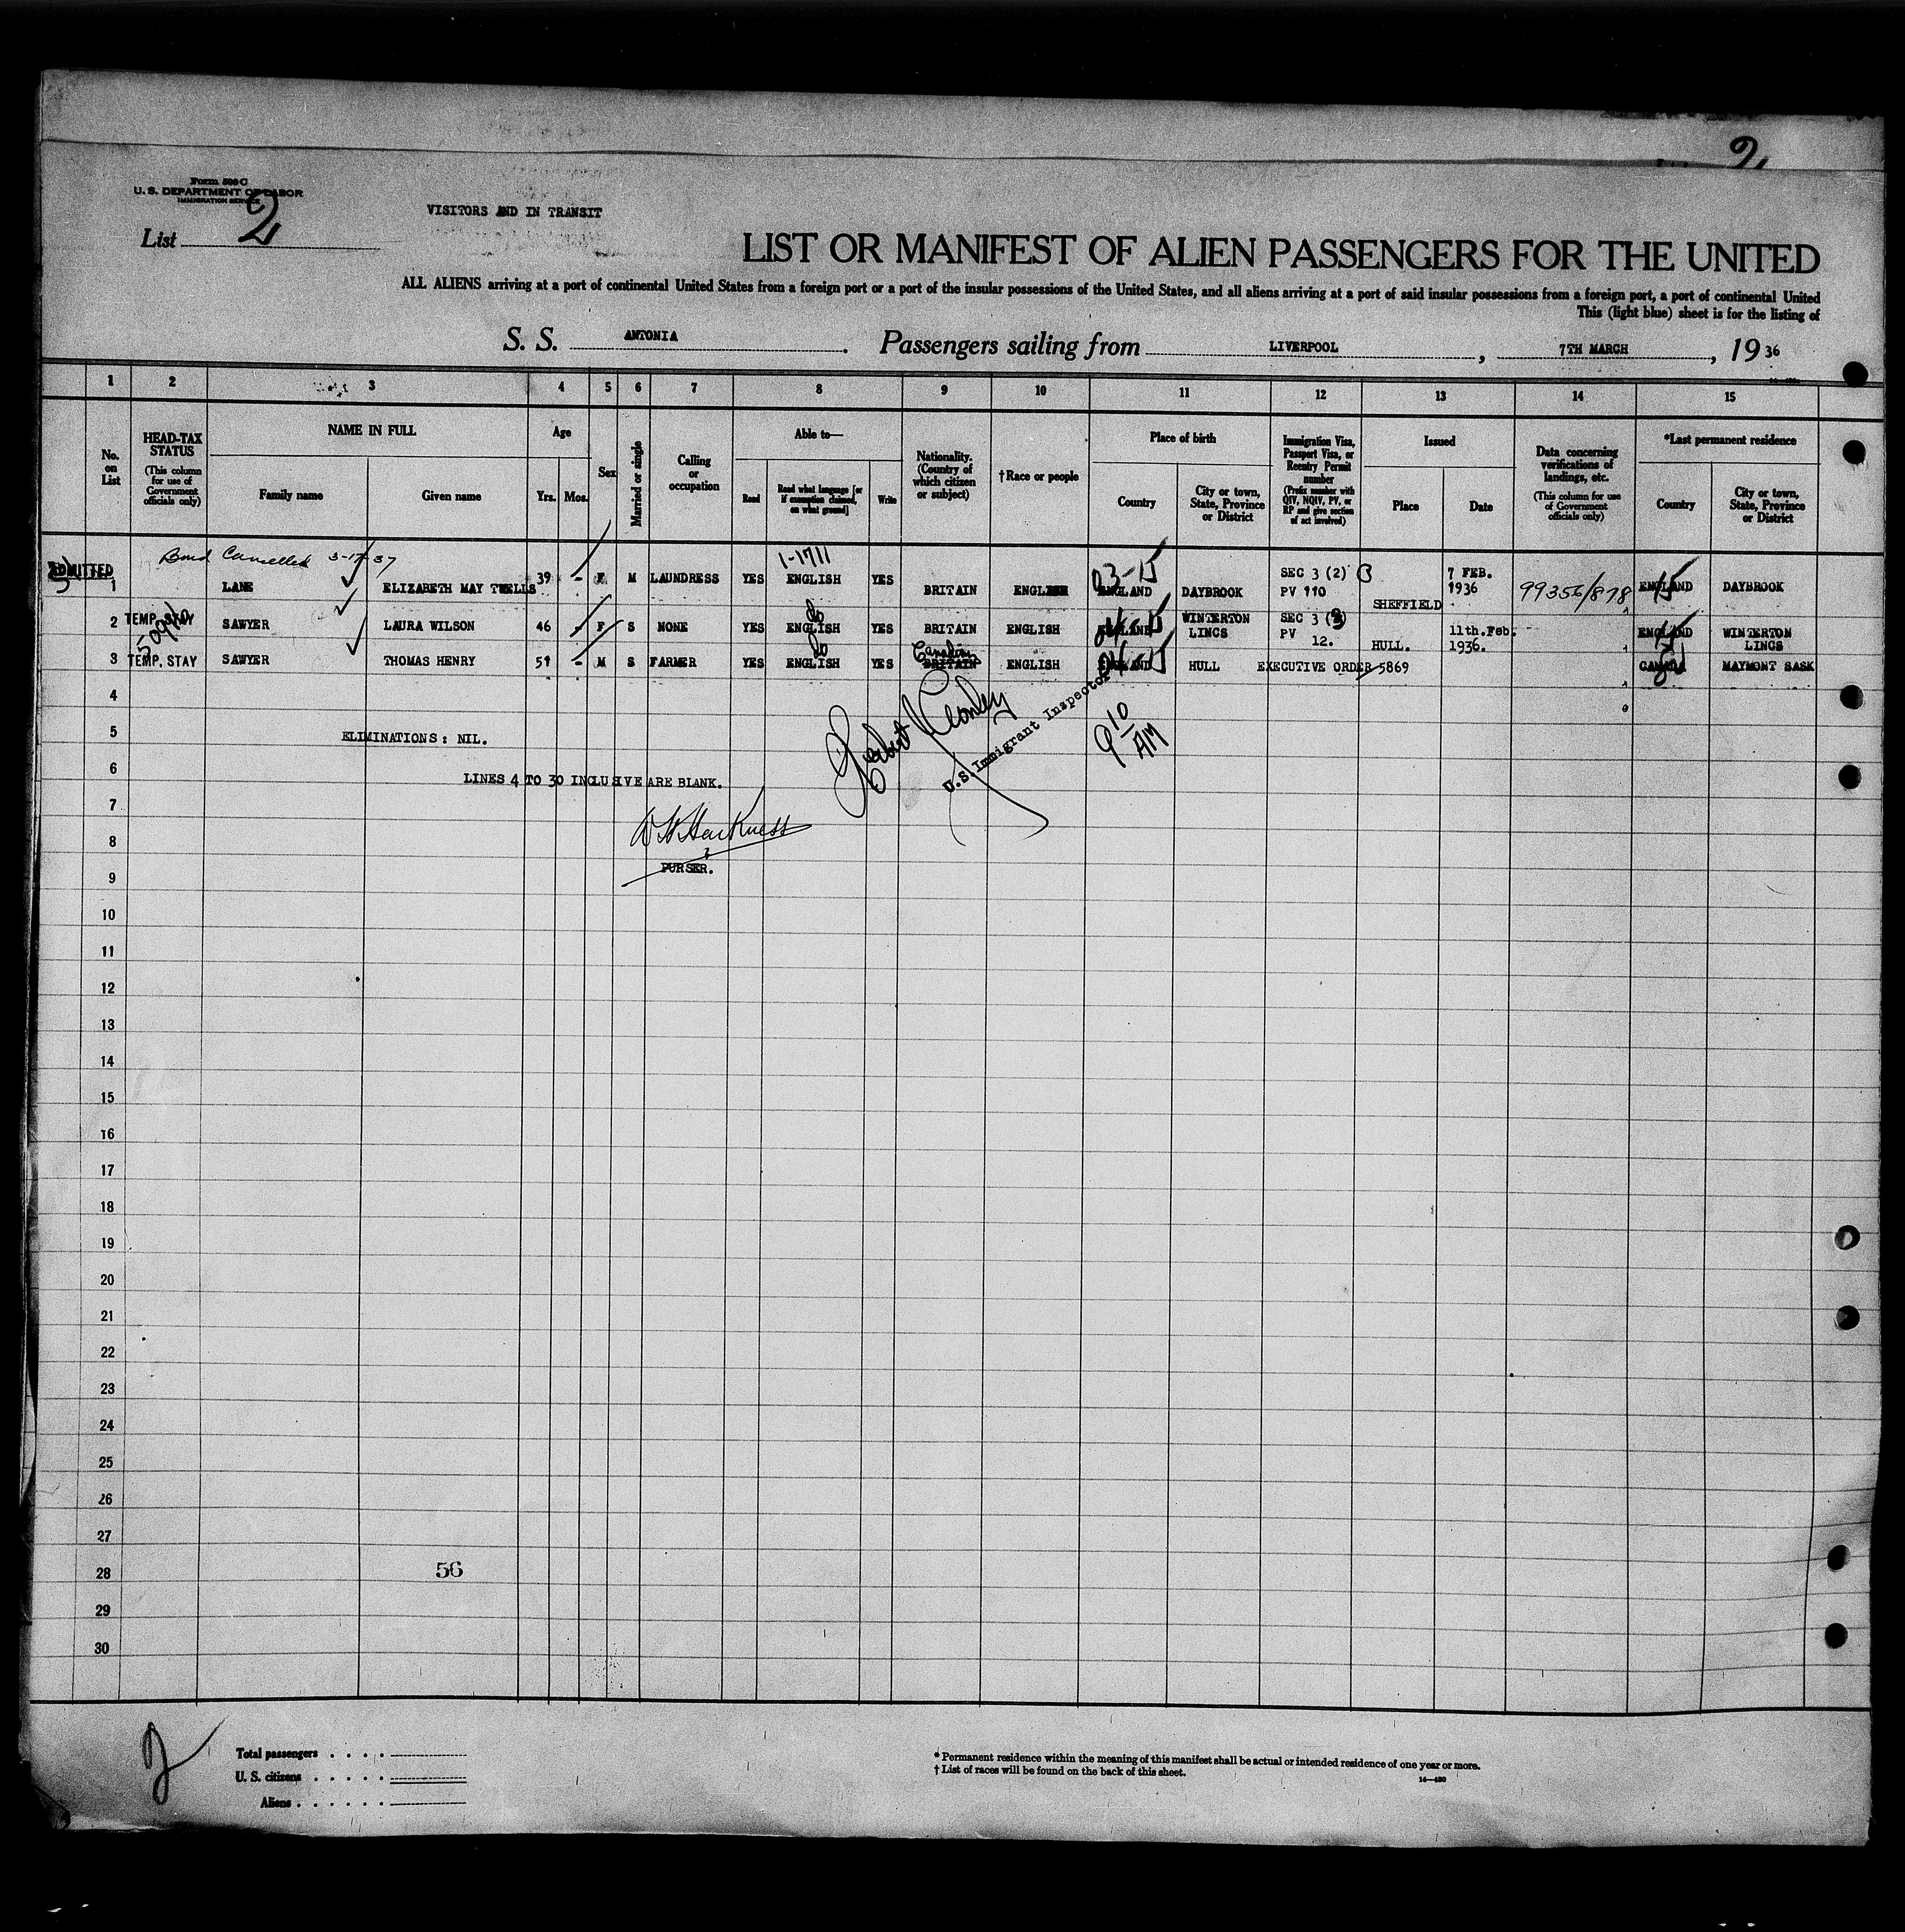 2
Form 500 C
U. S. DEPARTMENT OF LABOR
IMMIGRATION SERVICE
List 2
VISITORS AND IN TRANSIT
LIST OR MANIFEST OF ALIEN PASSENGERS FOR THE UNITED
ALL ALIENS arriving at a port of continental United States from a foreign port or a port of the insular possessions of the United States, and all aliens arriving at a port of said insular possessions from a foreign port, a port of continental United
This (light blue) sheet is for the listing of
S. S. ANTONIA. Passengers sailing from LIVERPOOL, 7TH MARCH, 19 36
1 2 3 4 5 6 7 8 9 10 11 12 13 14 15
No. on List
HEAD-TAX STATUS (This column for use of Government officials only)
NAME IN FULL
Family name
Given name
Age
Yrs. Mos.
Sex
Married or single
Calling or occupation
Able to—
Read
Read what language [or if exemption claimed, on what ground]
Write
Nationality. (Country of which citizen or subject)
†Race or people
Place of birth
Country
City or town, State, Province or District
Immigration Visa, Passport Visa, or Reentry Permit number (Prefix number with QIV, NQIV, PV, or RP and give section of act involved)
Issued
Place
Date
Data concerning verifications of landings, etc. (This column for use of Government officials only)
*Last permanent residence
Country
City or town, State, Province or District
Bond Cancelled 3-17-37
1-1711
ADMITTED
1 LANE ELIZABETH MAY TWELLS 39 - F M LAUNDRESS YES ENGLISH YES BRITAIN ENGLISH 03-15 ENGLAND DAYBROOK SEC 3 (2) B PV 110 SHEFFIELD 7 FEB. 1936 99356/878 ENGLAND 15 DAYBROOK
2 TEMP. STAY SAWYER LAURA WILSON 46 - F S NONE YES do ENGLISH YES BRITAIN ENGLISH ENGLAND WINTERTON LINCS SEC 3 (2) PV 12. HULL. 11th.Feb. 1936. ENGLAND WINTERTON LINCS
3 TEMP. STAY SAWYER THOMAS HENRY 51 - M S FARMER YES do ENGLISH YES Canadian BRITAIN ENGLISH ENGLAND HULL EXECUTIVE ORDER 5869 CANADA MAYMONT SASK
4
5 ELIMINATIONS: NIL.
6 LINES 4 TO 30 INCLUSIVE ARE BLANK.
U.S. Immigrant Inspector
9 10 AM
7
W H Harkness
8
PURSER.
9
10
11
12
13
14
15
16
17
18
19
20
21
22
23
24
25
26
27
28 56
29
30
2
Total passengers
U. S. citizens
Aliens
* Permanent residence within the meaning of this manifest shall be actual or intended residence of one year or more.
† List of races will be found on the back of this sheet.
14—430